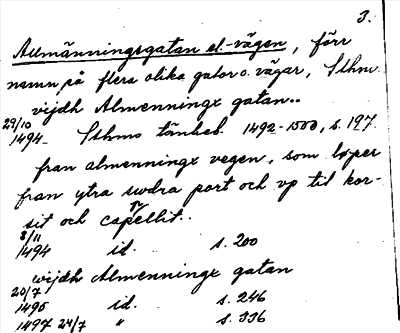 3.
Allmänningsgatan el. -vägen, förr
namn på flera olika gator o. vägar, Sthm.
vijdh Almenningx gatan..
29/10
1494. Sthms tänkeb. 1492-1500, s. 197
fran almenningx vegen, som løper
fran ytra sudra port och vp til kor-
sit och capellit..
8/11
1494 id. s. 200
wijdh Almenningx gatan
20/7
1496 id. s. 246
1497 24/7 " s. 336